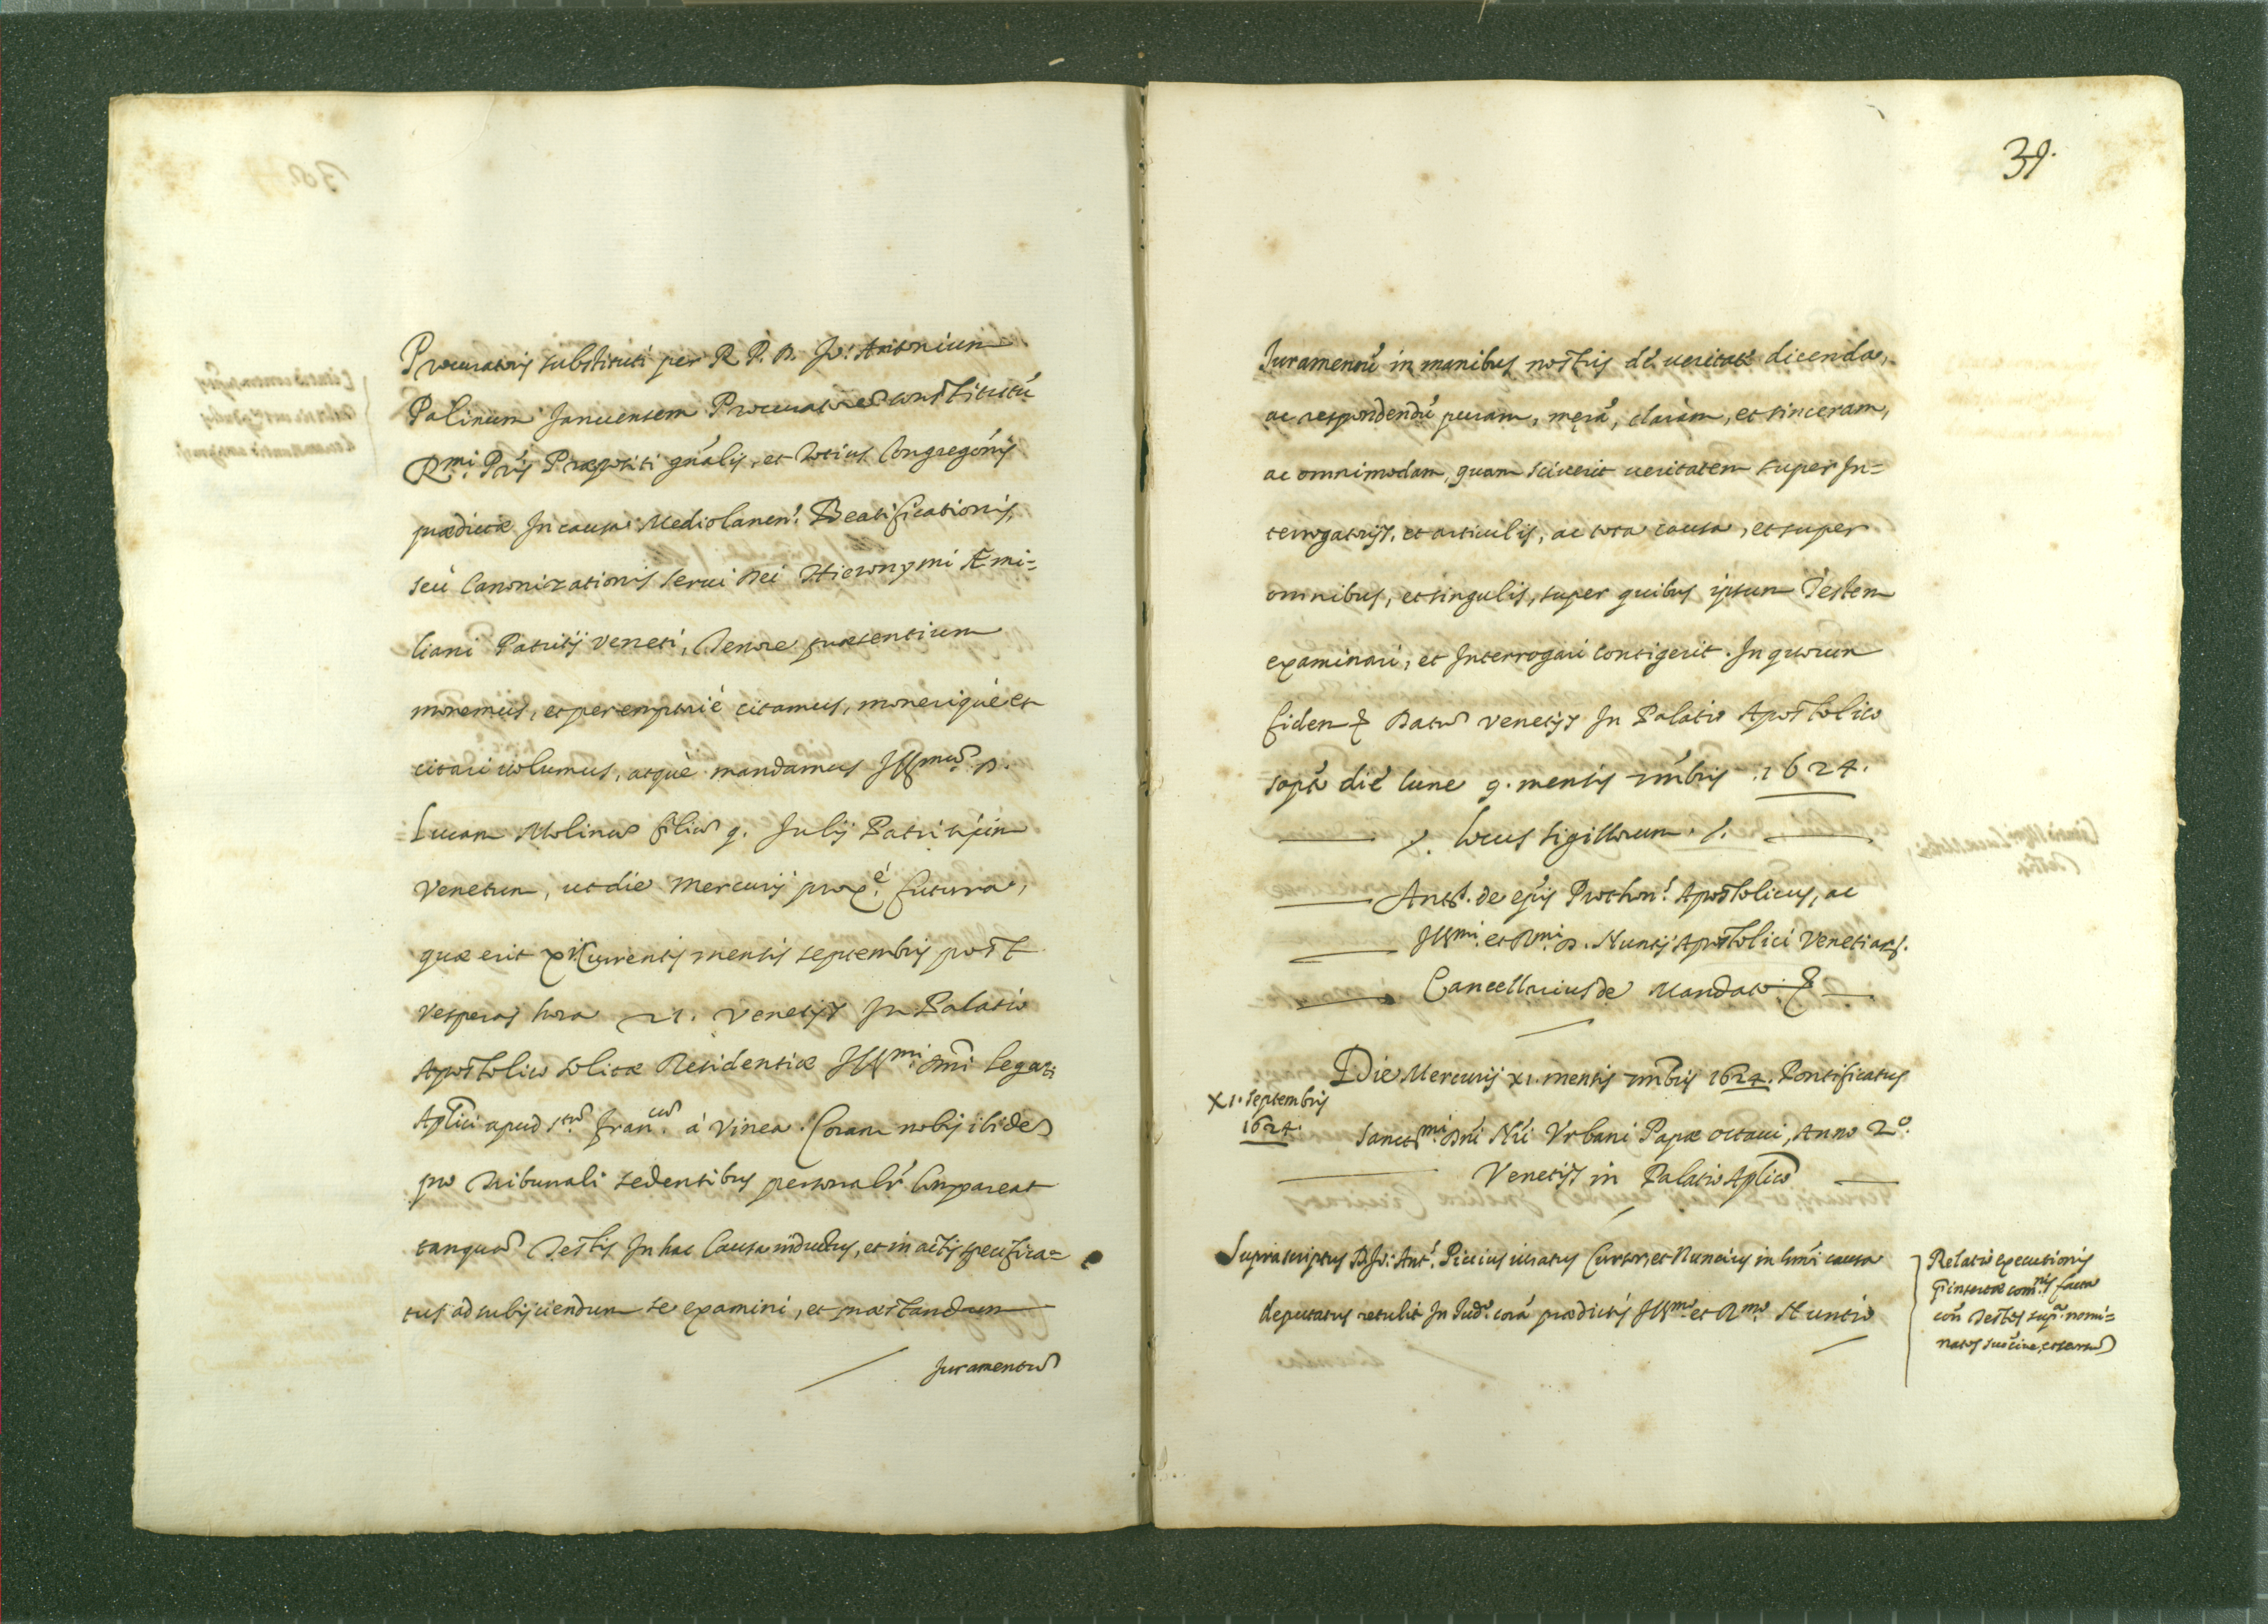 Procuratoris substituti per R. P. D. Jo: Antonium
Palinum Januensem Procuratorē constitutū
Rmi. Pris Præpositi gñalis, et totius Congregónis
prædictæ In causa Mediolanen. Beatificationis,
seù Canonizationis serui Dei Hieronymi Æmi=
liani Patritij Veneti, Tenore præsentium
monemus, et peremptoriè citamus, moneriquè et
citari volumus, atquè mandamus Illmū. D.
Lucam Molinū filiū q. Julij Patritium
Venetum, ut die Mercurij prox.è futura,
quæ erit xi Currentis mensis septembris post
Vesperas hora 21. Venetijs In Palatio
Apostolico solitæ Residentiæ Illmi. Dñi Legati
Aplici apud Stū. Francū. à Vinea. Coram nobis ibidē
pro Tribunali sedentibus personalr Compareat
tanquā Testis In hac Causa inductus, et in actis specifica=
tus ad subijciendum se examini, et præstandum
Juramentū
39.
Juramentū in manibus nostris dè veritatè dicenda,
ac respondendū puram, merā, claram, et sinceram,
ac omnimodam, quam sciuerit ueritatem super In=
terrogatorijs, et articulis, ac tota causa, et super
omnibus, et singulis, super quibus ipsum Testem
examinari, et Interrogari contigerit. In quorum
fidem & Datū Venetijs In Palatio Apostolico
sopto die lune 9. mensis 7mbris .1624.
Locus sigillorum.
Anct. de eijs Prothon. Apostolicus, ac
Illmi. et Rmi. D. Nuntij Apostolici Venetiarū.
Cancellarius de Mandato &
Die Mercurij xi. mensis 7mbris 1624. Pontificatus
XI. Septembris
1624.
Sanctmi. Dñi Ñri Vrbani Papæ octaui, Anno 2º.
Venetijs in Palatio Aplico
Suprascriptus D. Jo: Ant. Piccius iuratus Cursor, et Nuncius in hmōi causa
deputatus retulit In Jud.º corā prædictis Illmo. et Rmo. Nuntio
Relatio executionis
com.nis facta
Testes nomi=
natos